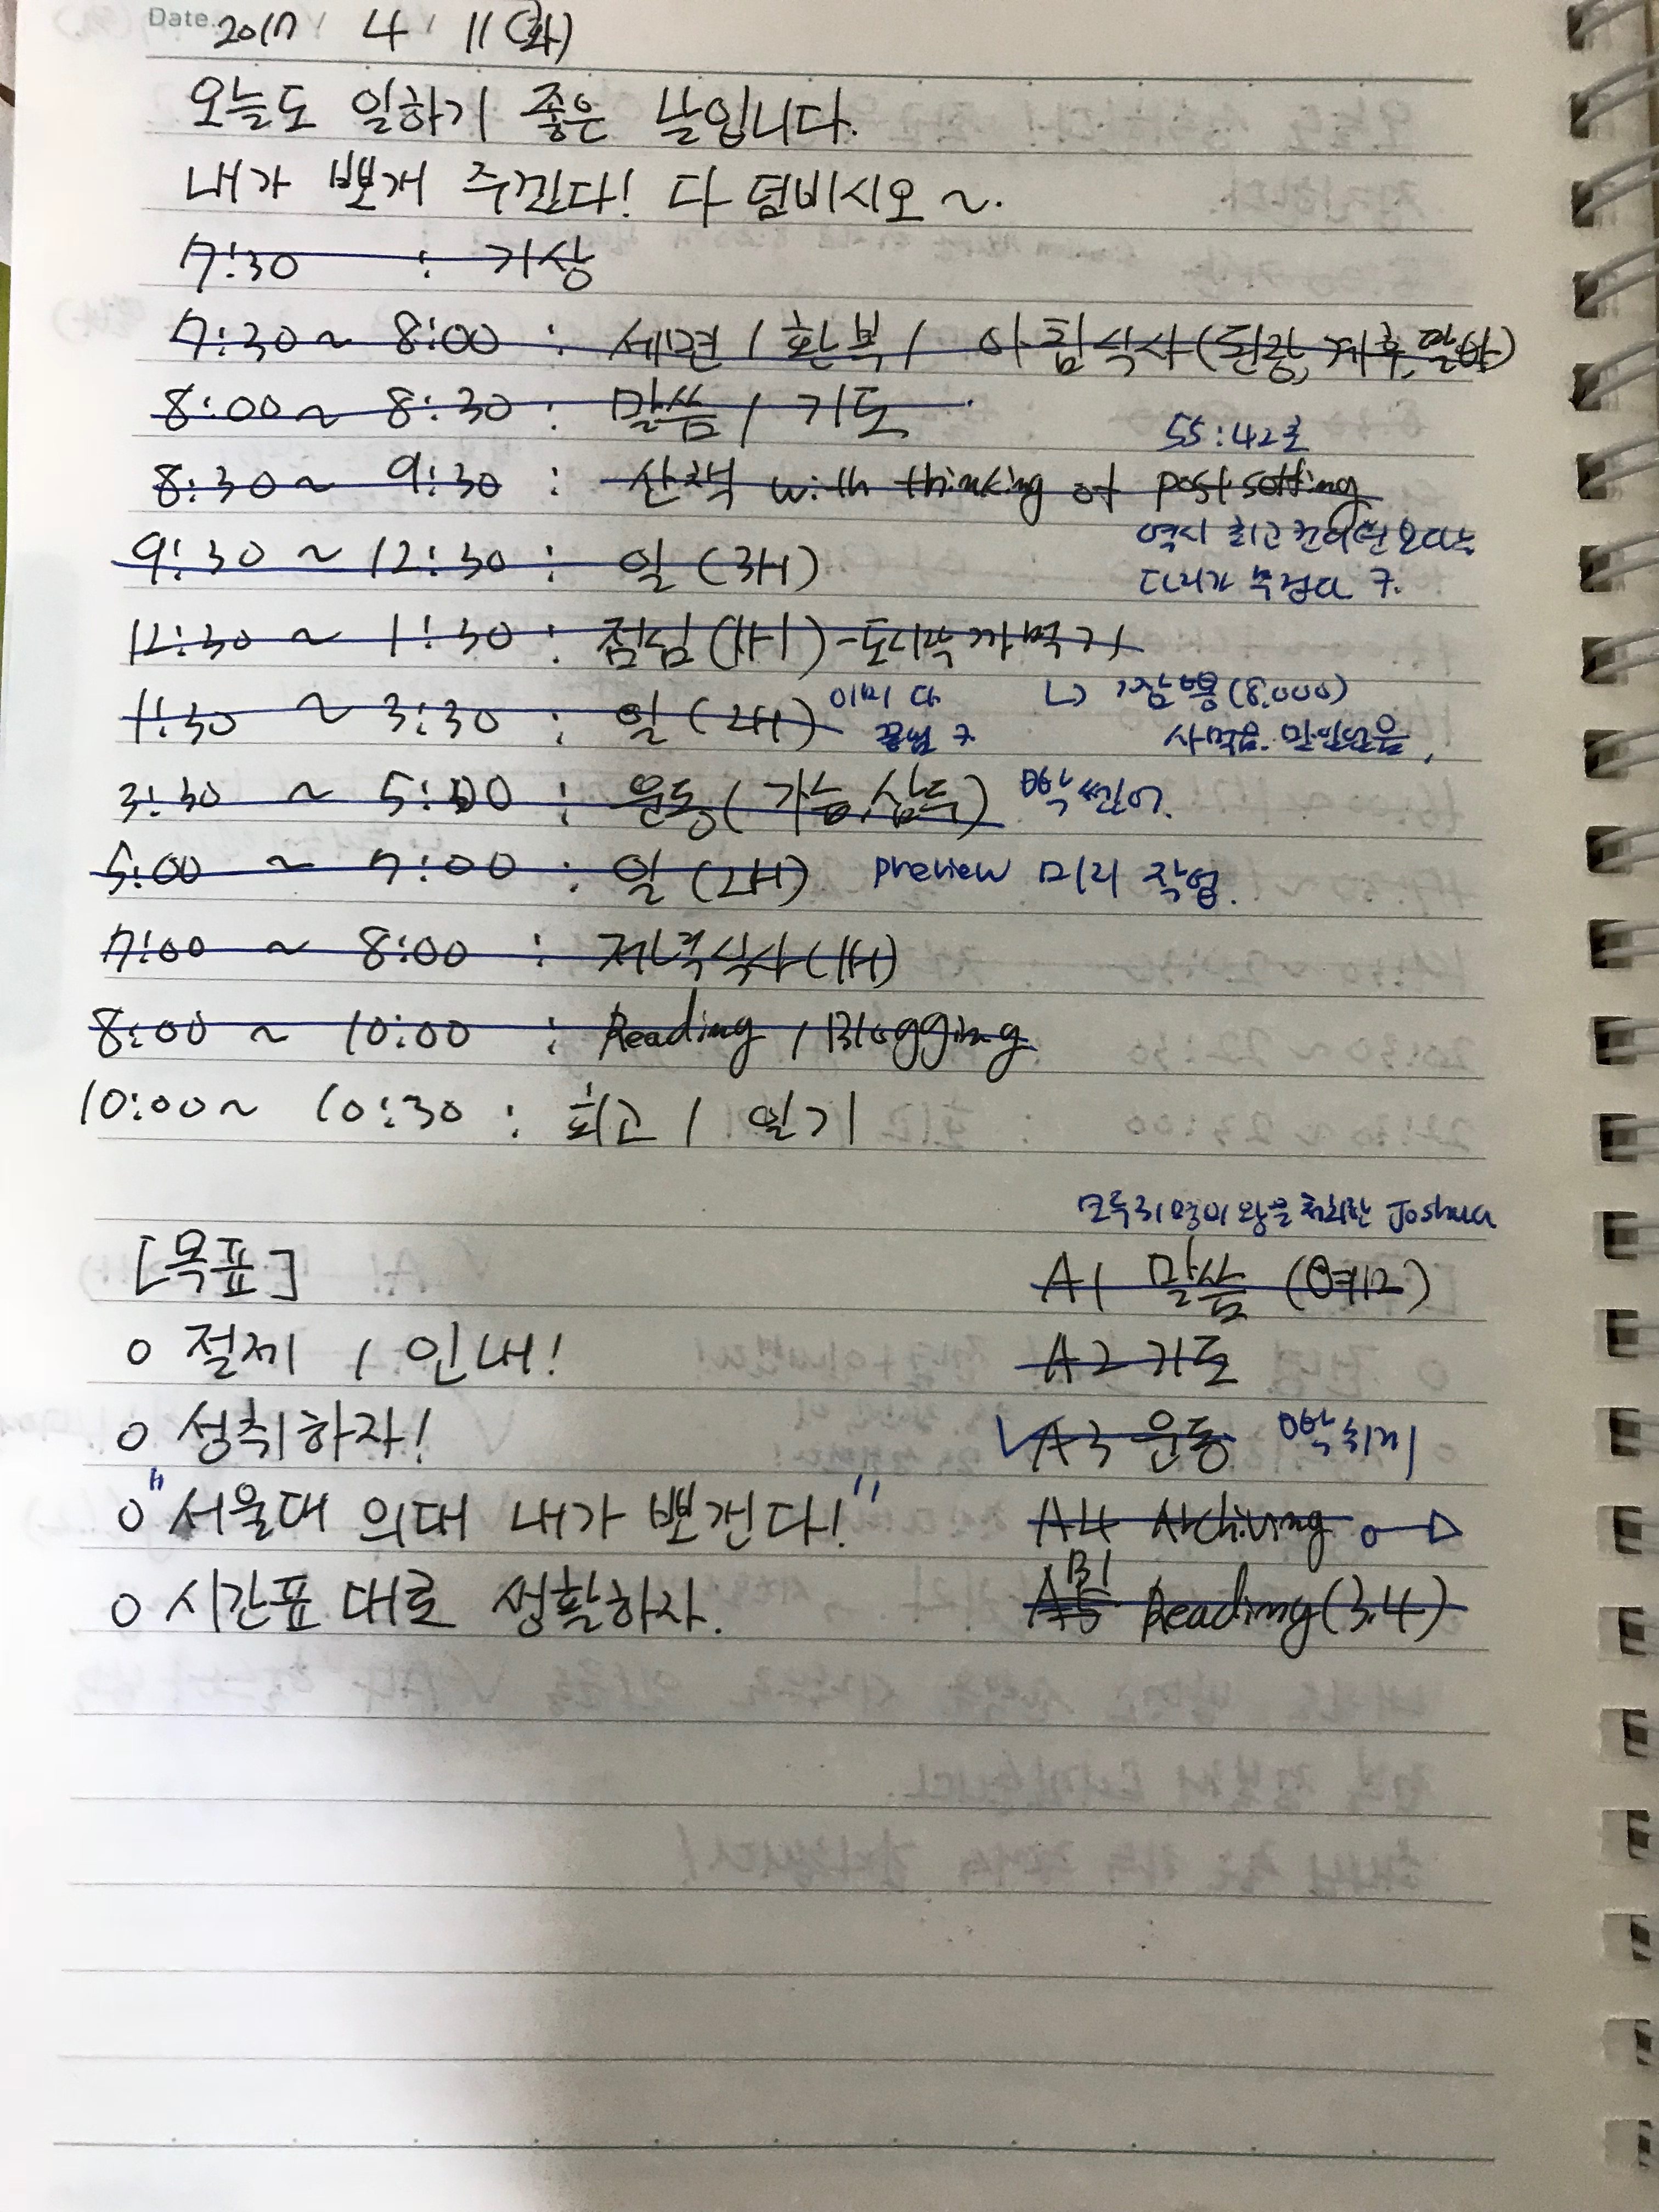 Date. 2017 4 11 (화)
오늘도 일하기 좋은 날입니다.
내가 뽀개 주겠다! 다 덤비시오~.
7:30 : 기상
7:30 ~ 8:00 : 세면 / 환복 / 아침식사 (된장, 계후,
8:00 ~ 8:30 : 말씀 / 기도
55:42로
8:30 ~ 9:30 : 산책 with thinking of post
역시 최고
9:30 ~ 12:30 : 일 (3H)
다리가
12:30 ~ 1:30 : 점심 (1H) - 도시락 까먹기
1:30 ~ 3:30 : 일 (2H) 이미 다 끝냄 ㅋ
↳ 짬뽕 (8,000)
사먹음.
3:30 ~ 5:00 : 운동 (가슴, 삼두) 빡쎘어.
5:00 ~ 7:00 : 일 (2H) preview 미리 작업.
7:00 ~ 8:00 : 저녁식사 (1H)
8:00 ~ 10:00 : Reading / Blogging
10:00 ~ 10:30 : 회고 / 일기
모두 31명의 왕을 처치한 Joshua
[목표]
A1 말씀 (여12)
o 절제 / 인내!
A2 기도
o 성취하자!
A3 운동 빡쎄게
o "서울대 의대 내가 뽀갠다!"
A4 Archiving
o 시간표 대로 생활하자.
B1 Reading (3.4)